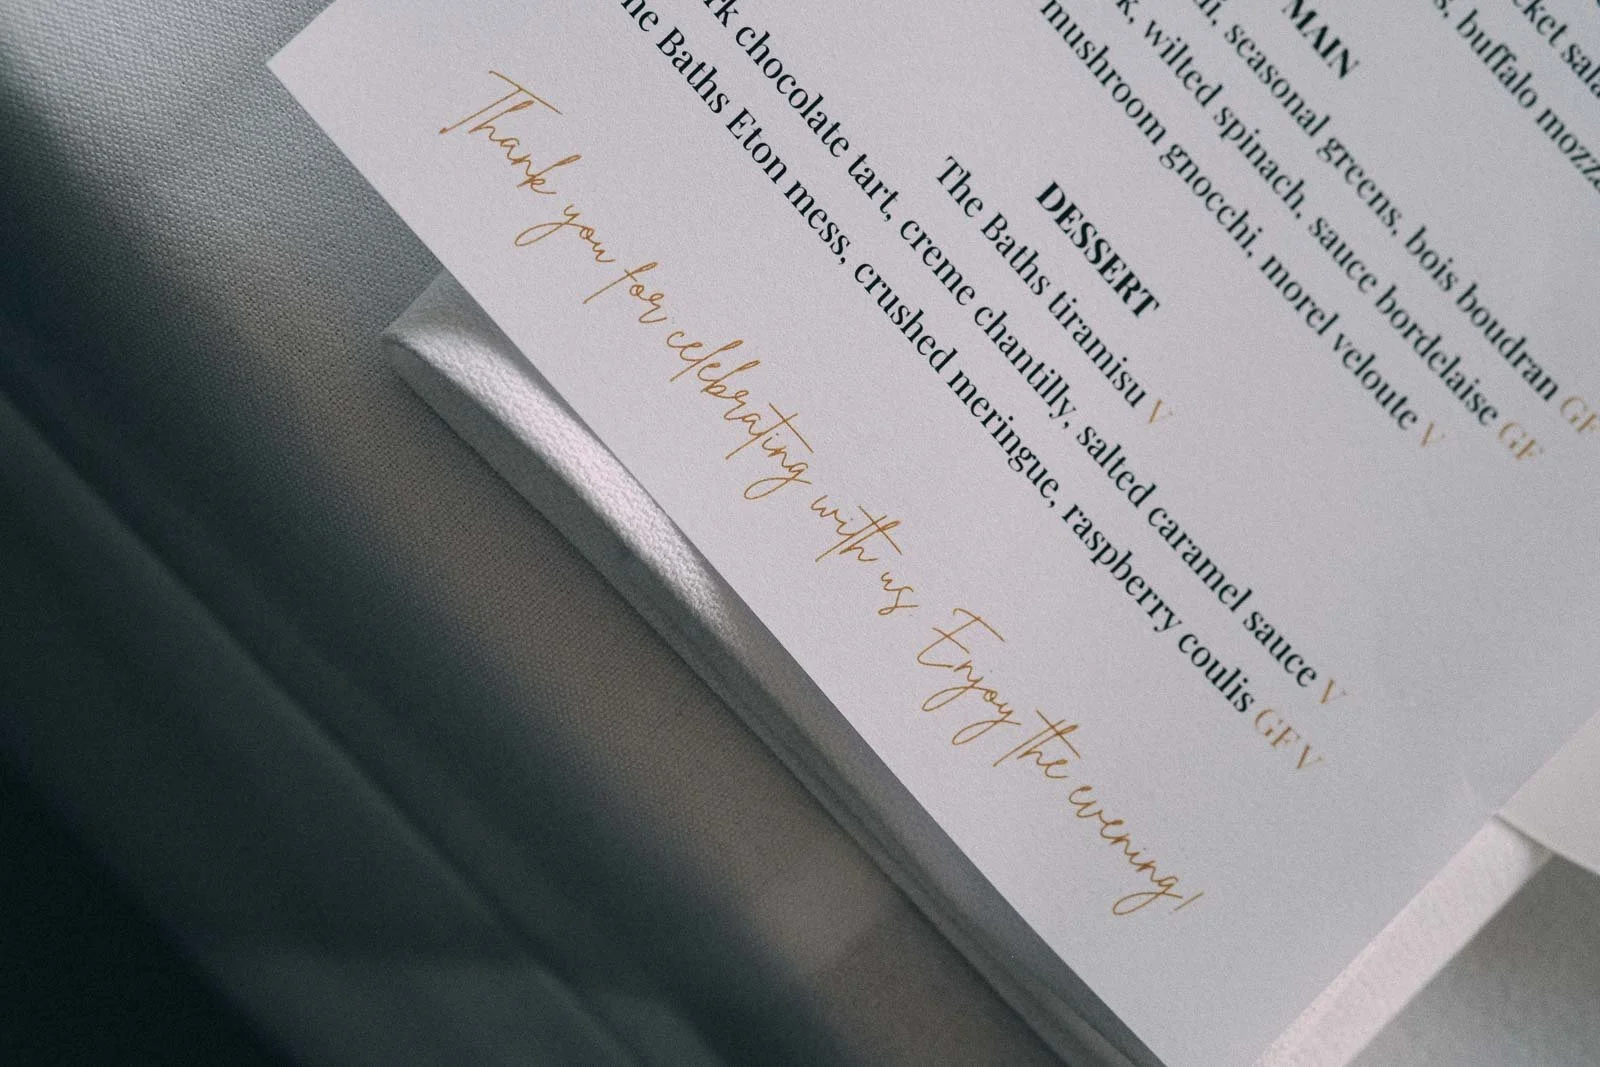 salad
buffalo
MAIN
seasonal greens, bois boudran GF
wilted spinach, sauce bordelaise GF
mushroom gnocchi, morel veloute V
DESSERT
The Baths tiramisu V
chocolate tart, creme chantilly, salted caramel sauce V
Baths Eton mess, crushed meringue, raspberry coulis GF V
Thank you for celebrating with us. Enjoy the evening!